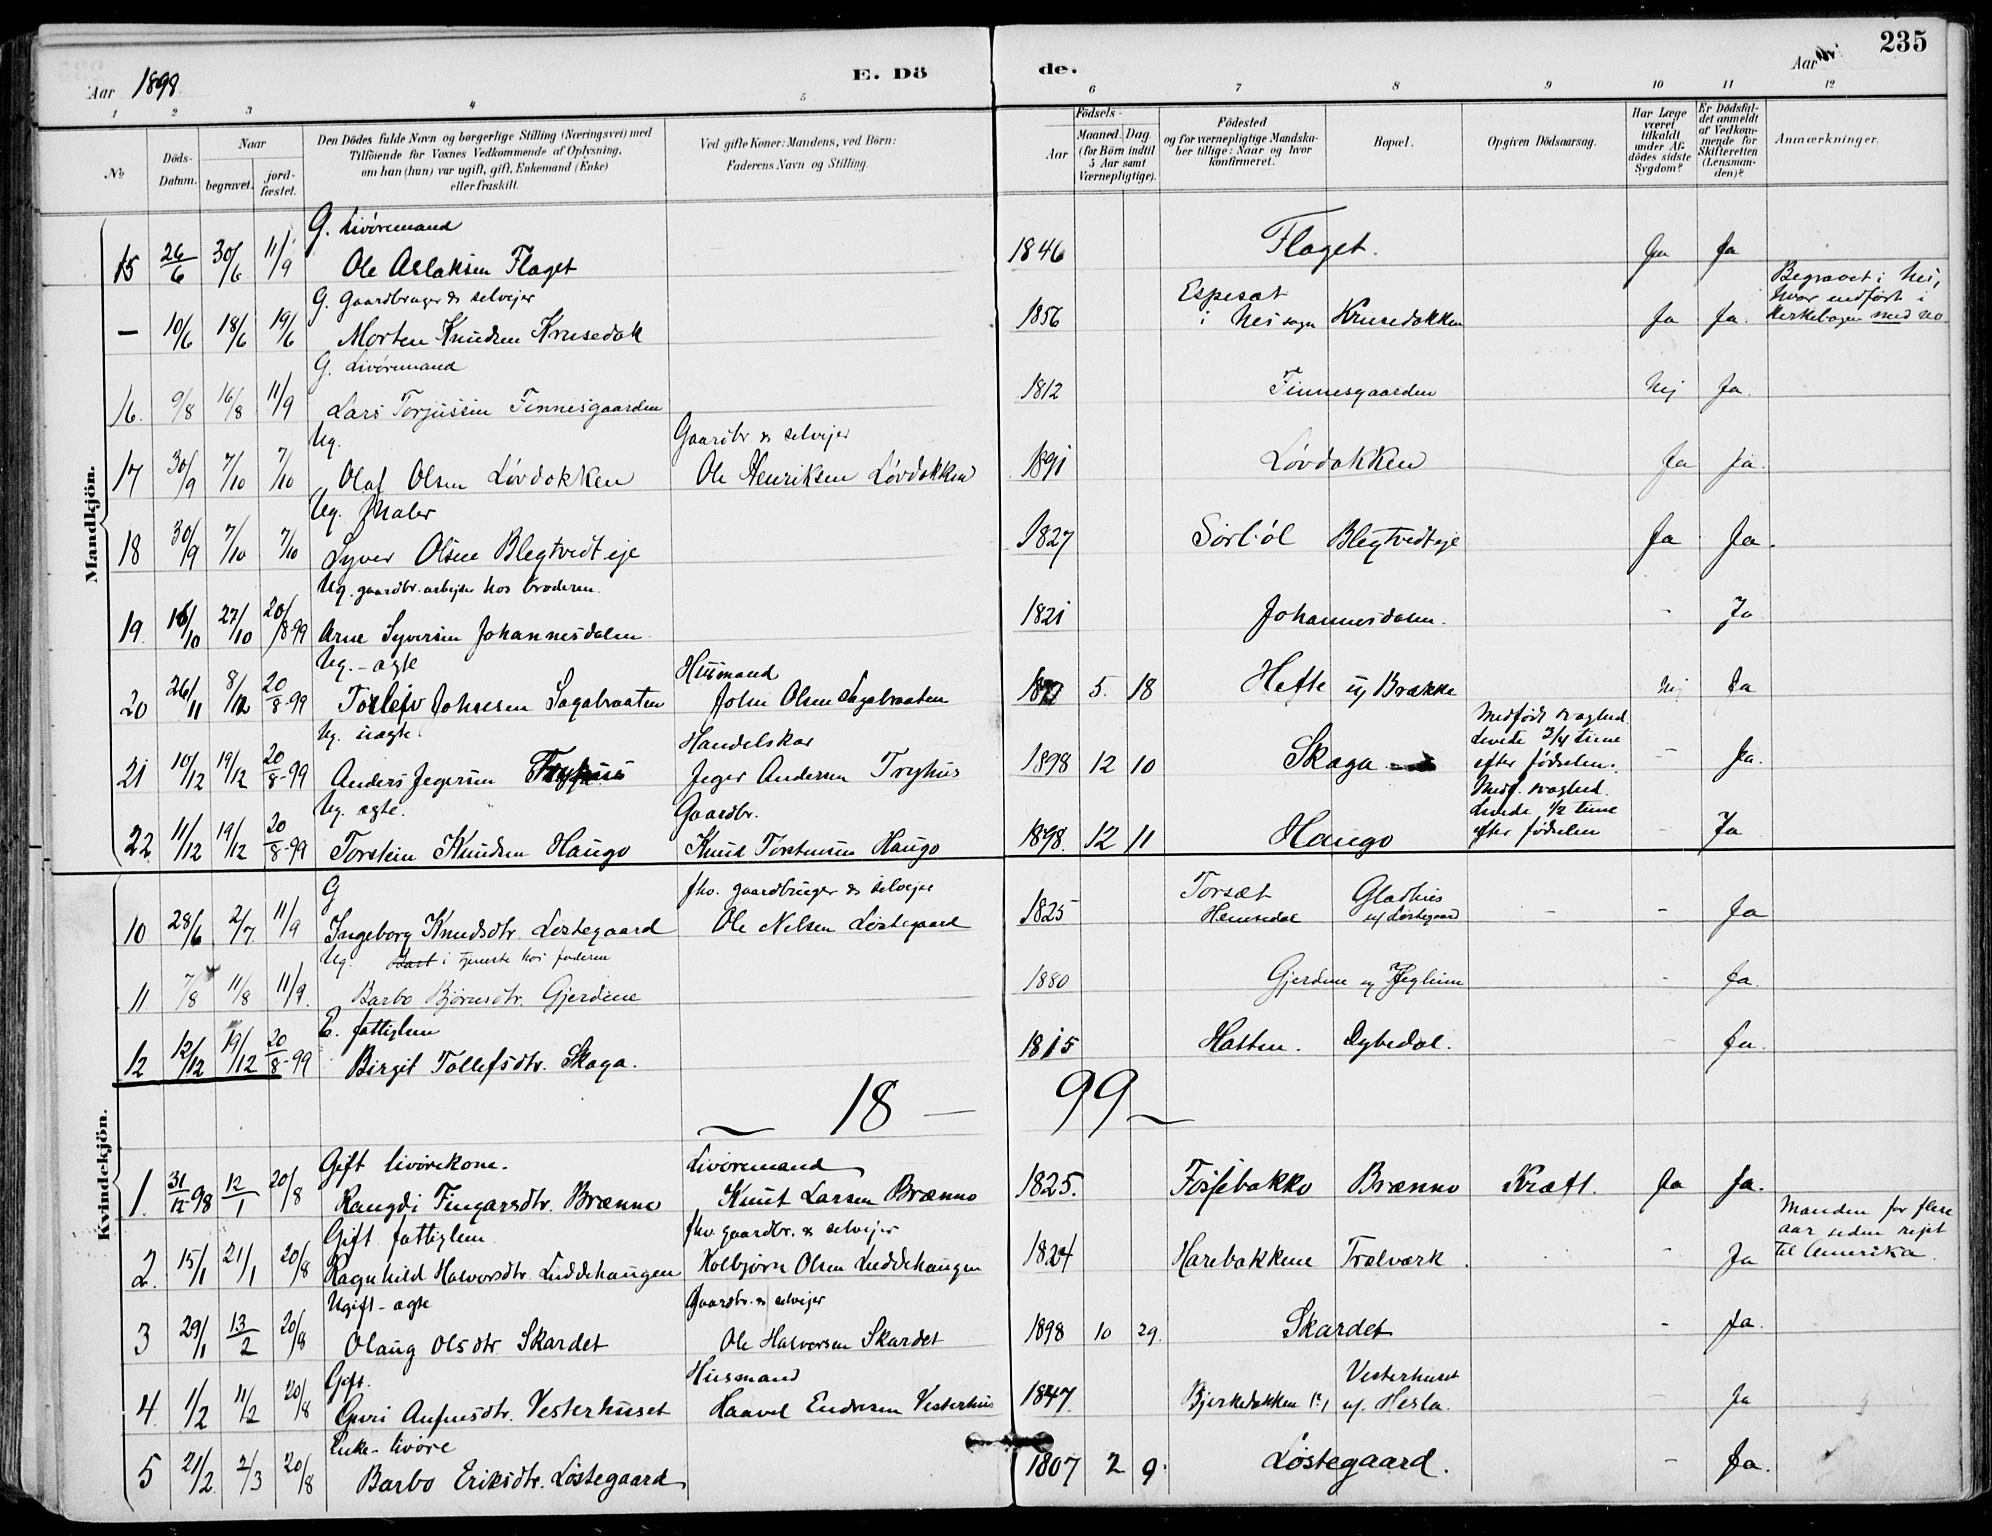 235
Aar 1898.
E. Dö de.
Aar
1 2 3 4 5 6 7 8 9 10 11 12
No
Döds-Datum.
Naar
begravet.
jordfæstet.
Den Dödes fulde Navn og borgerlige Stilling (Næringsvei) med
Tilföiende for Voxnes Vedkommende af Oplysning,
om han (hun) var ugift, gift, Enkemand (Enke)
eller fraskilt.
Ved gifte Koner: Mandens, ved Börn:
Faderens Navn og Stilling
Födsels-
Aar
Maaned. Dag.
(for Börn indtil
5 Aar samt
Værnepligtige).
Födested
og for værnepligtige Mandskaber tillige: Naar og hvor
konfirmeret.
Bopæl.
Opgiven Dödsaarsag.
Har Læge
været
tilkaldt
under Afdödes sidste
Sygdom?
Er Dödsfaldet anmeldt
af Vedkommende for
Skifteretten
(Lensmanden)?
Anmærkninger.
Mandkjön.
G. Livøremand
15 26/6 30/6 11/9 Ole Aslaksen Flaget 1846 Flaget. Ja Ja
G. Gaardbruger & selvejer
Begravet i Nes,
hvor indført i
Kirkebogen med no.
— 10/6 18/6 19/6 Morten Knudsen Krusedok 1856 Espesæt i Nes sogn Krusedokken Ja Ja.
G. Livøremand
16. 9/8 16/8 11/9 Lars Torjussen Finnesgaarden 1812 Finnesgaarden Nej Ja.
Ug. Gaardbr. & selvejer
17 30/9 7/10 7/10 Olaf Olsen Løvdokken Ole Henriksen Løvdokken 1891 Løvdokken Ja Ja.
Ug. Maler
18 30/9 7/10 7/10 Syver Olsen Blegtvedt eje 1827 Sørbøl Blegtvedt eje Ja Ja.
Ug. gaardbr. arbejde hos broderen.
19. 18/10 27/10 20/8-99 Arne Syversen Johannesdalen 1821 Johannesdalen. - Ja
Ug. - ægte Husmand
20 26/11 8/12 20/8-99 Torleiv Johnsen Sagabraaten John Olsen Sagabraaten 5. 18 Hefte u/ Brække Nej Ja
Ug. uægte. Handelskar
Medfødt svaghed.
Levede 3/4 time
efter fødselen.
21 10/12 19/12 20/8-99 Anders Jegersen Tryhus Jeger Andersen Tryhus 1898 12 10 Skaga - Ja.
Ug. ægte. Gaardbr.
Medf. svaghed.
Levede 1/2 time
efter fødselen
22 11/12 19/12 20/8-99 Torstein Knudsen Haugo Knud Torstensen Haugo 1898. 12 11 Haugo - Ja
Kvindekjön.
G fhv. gaardbruger & selvejer
10 28/6 2/7 11/9 Ingeborg Knudsdtr. Løstegaard Ole Nelsen Løstegaard 1825 Torsæt Hemsedal Gladhus u/ Løstegaard - - Ja
Ug. i tjeneste hos faderen
11 7/8 11/8 11/9. Barbo Bjørnsdtr. Gjerdene 1880 Gjerdene u/ Jeglum - Ja.
E. fattiglem
12 12/12 19/12 20/8-99 Birgit Tollefsdtr. Skaga. 1815 Hatten. Dybedal. - Ja.
18 — 99
Gift livørekone. Livøremand
1. 31/12-98 12/1 20/8 Rangdi Fingarsdtr. Brænno Knut Larsen Brænno 1825. Fossebakko Brænno Kræft. Ja Ja.
Gift fattiglem fhv. gaardbr. & selvejer
Manden for flere
aar siden rejst
til Amerika.
2. 15/1 21/1 20/8 Ragnhild Halvorsdtr. Luddehaugen Kolbjørn Olsen Luddehaugen 1824 Harebakkene Tralværk. - Ja
Ugift - ægte Gaardbr. & selvejer
3 29/1 13/2 20/8 Olaug Olsdtr. Skardet Ole Halvorsen Skardet 1898 10 29. Skardet - Ja.
Gift. Husmand
4. 1/2 11/2 20/8 Guri Anfinsdtr. Vesterhuset Haavel Endresen Vesterhus 1847. Bjerkedokken (?) Vesterhuset u/ Hesla. - Ja
Enke - livøre
5 21/2. 2/3 20/8 Barbo Eriksdtr. Løstegaard 1807 2 9. Løstegaard. - Ja.